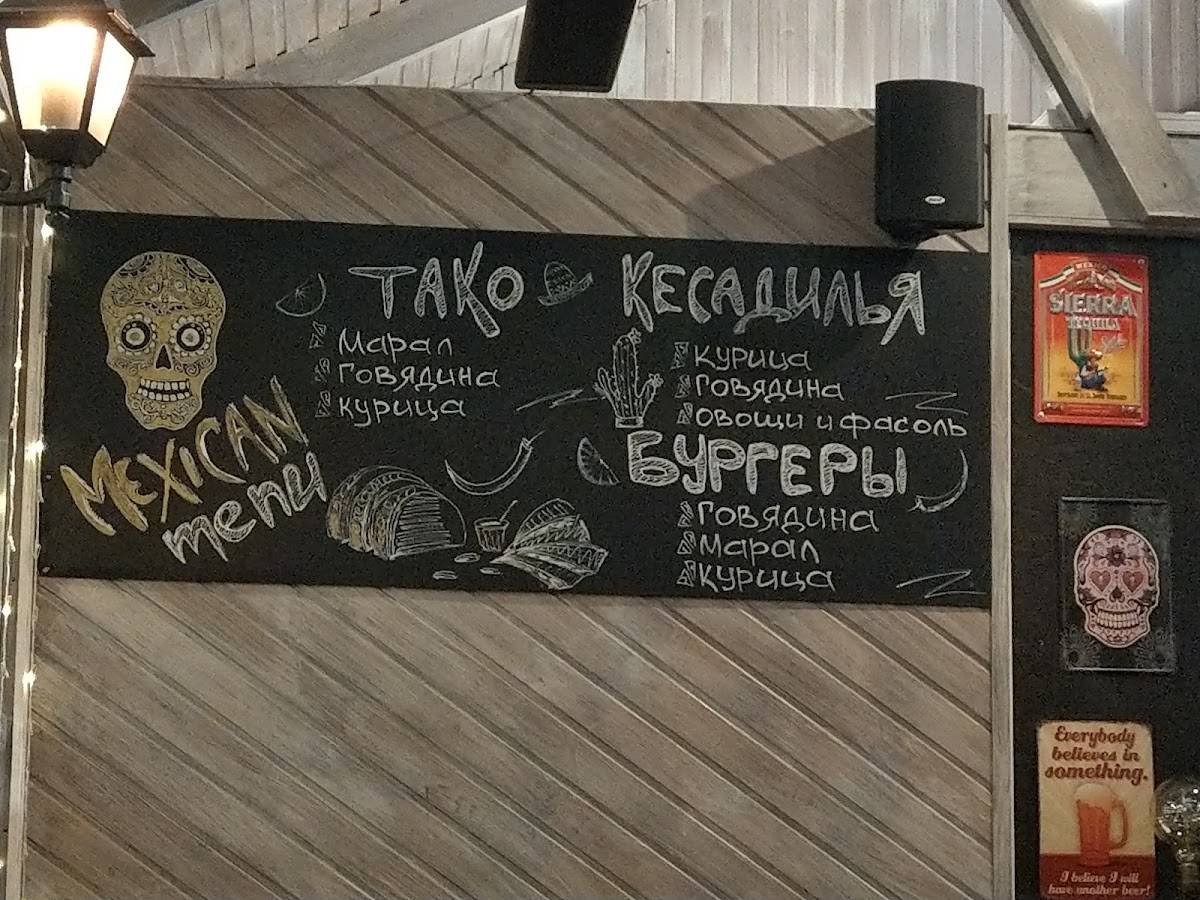 MEXICAN
menu
ТАКО
Марал
Говядина
Курица
КЕСАДИЛЬЯ
Курица
Говядина
Овощи и фасоль
БУРГЕРЫ
Говядина
Марал
Курица
MEXICO
SIERRA
TEQUILA
Everybody
believes in
something.
I believe I will
have another beer!